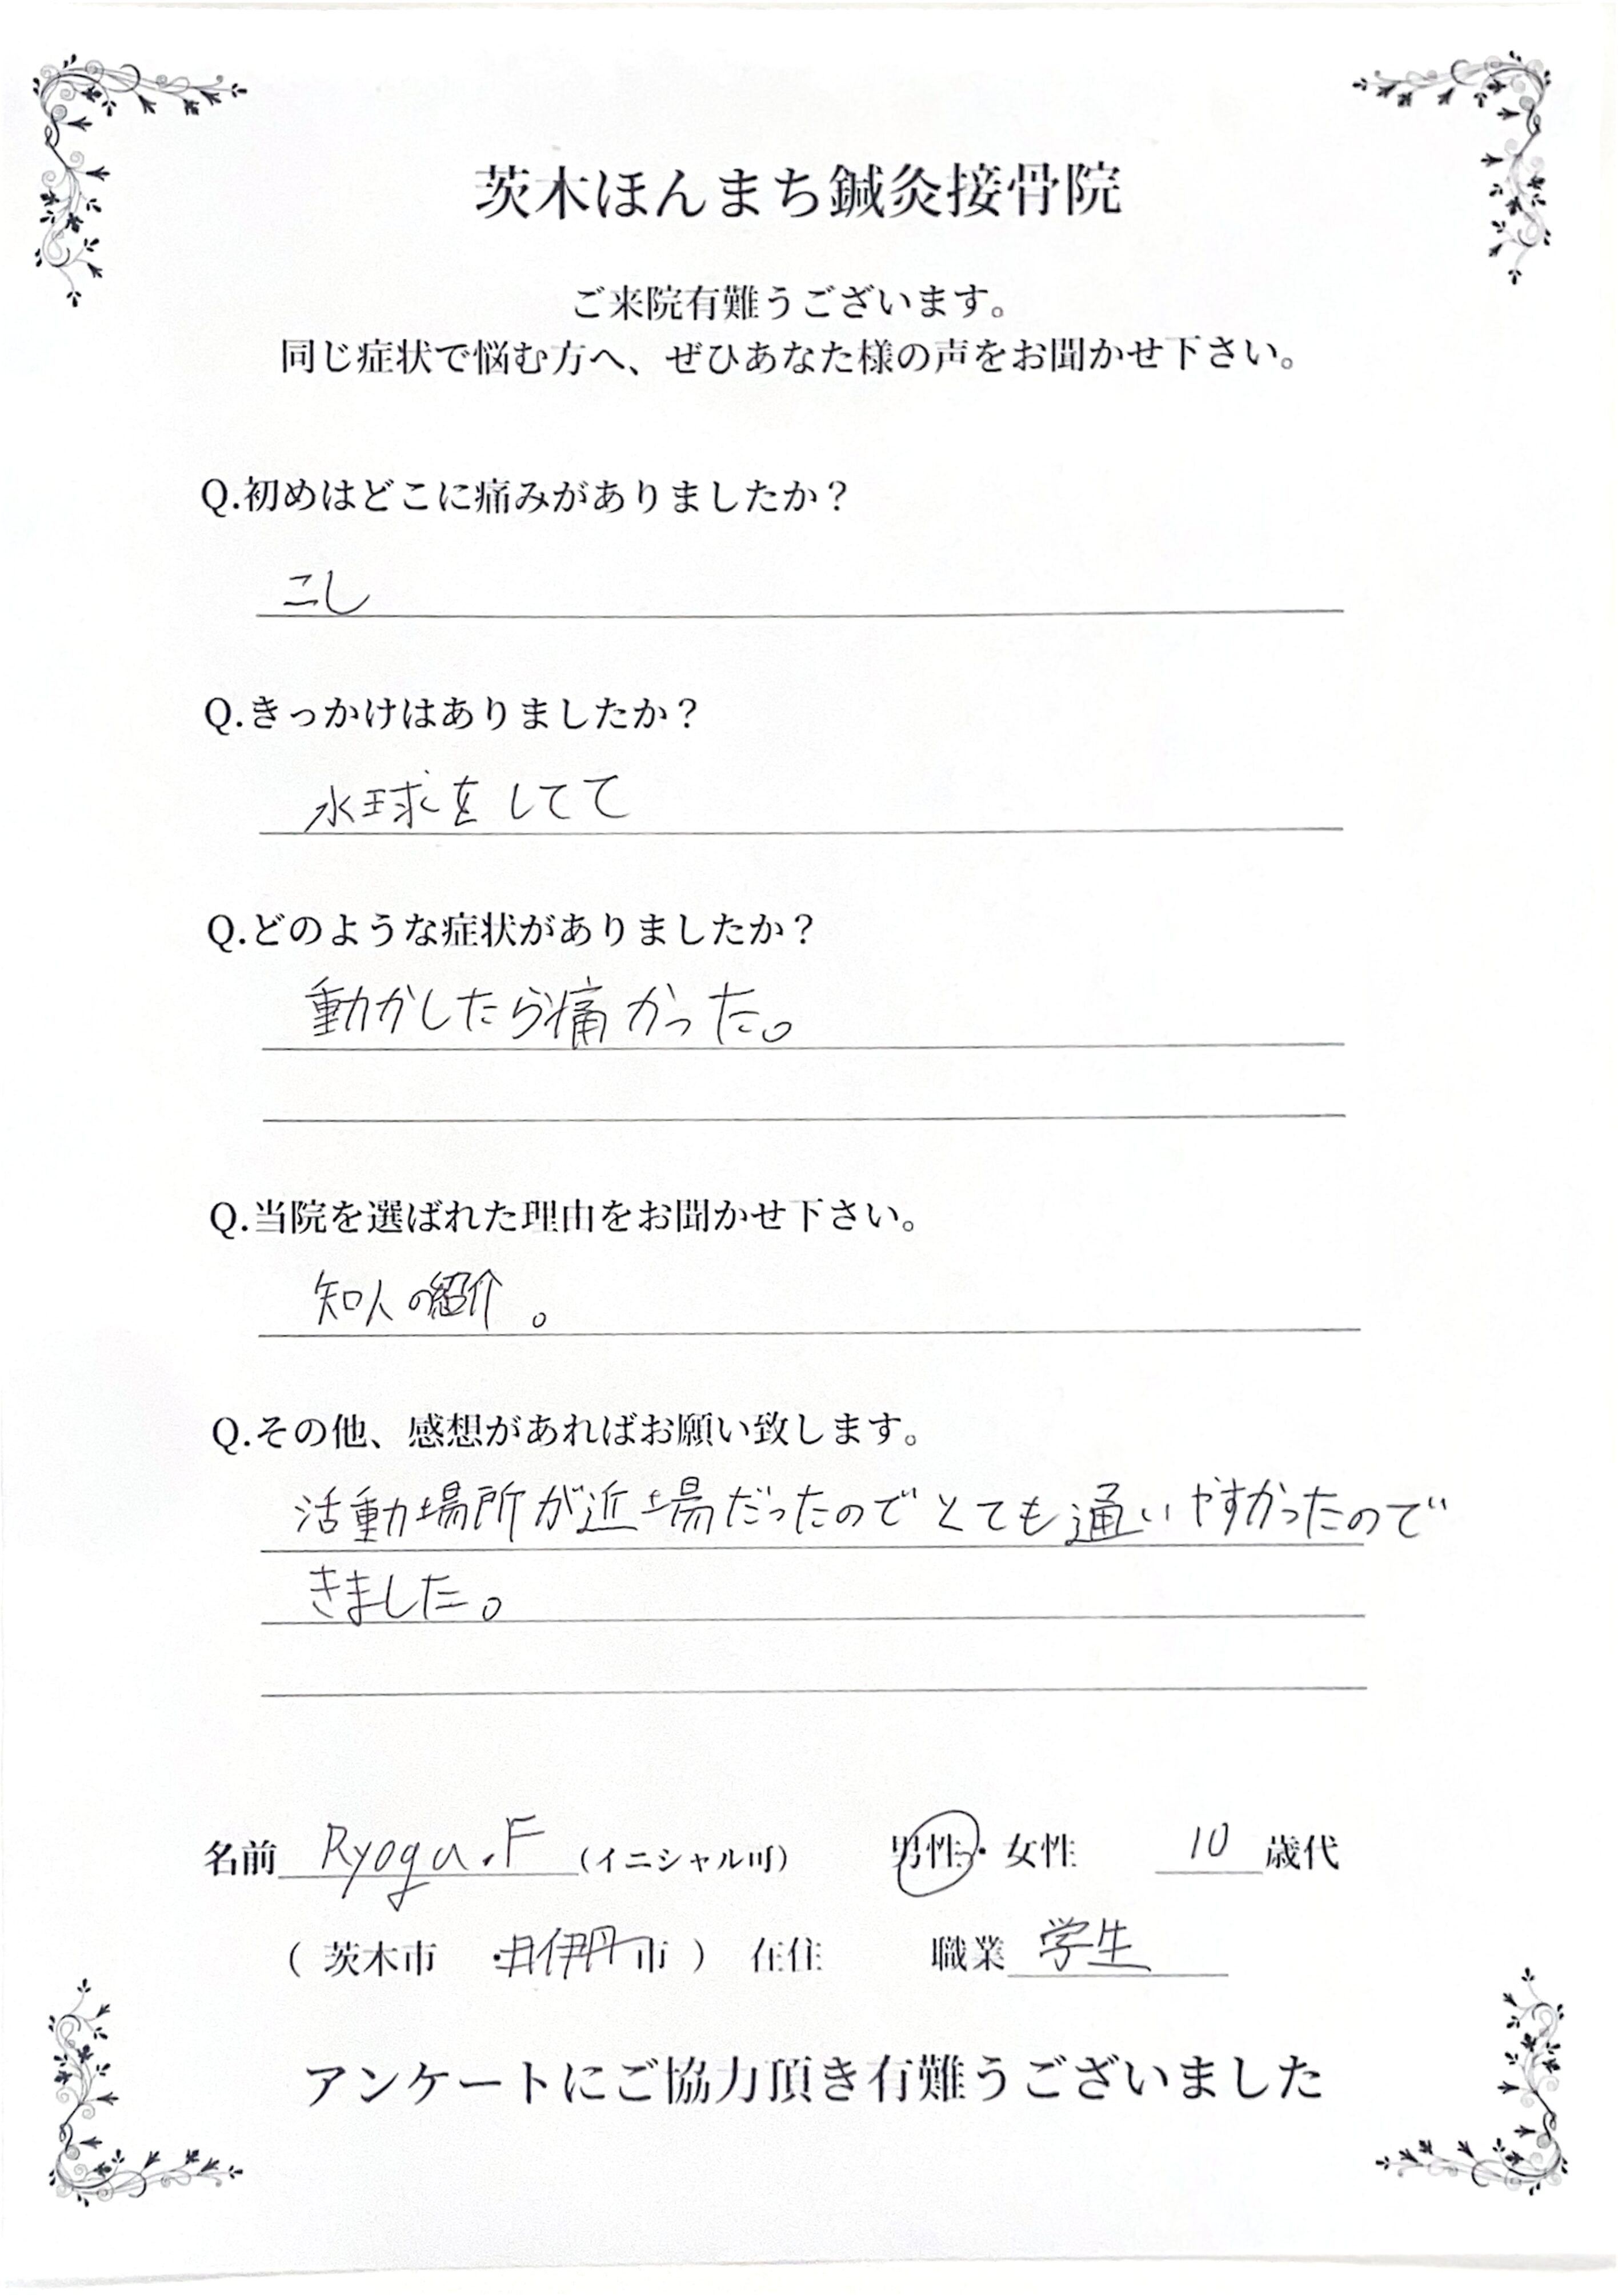 茨木ほんまち鍼灸接骨院
ご来院有難うございます。
同じ症状で悩む方へ、ぜひあなた様の声をお聞かせ下さい。
Q.初めはどこに痛みがありましたか？
こし
Q.きっかけはありましたか？
水球をしてて
Q.どのような症状がありましたか？
動かしたら痛かった。
Q.当院を選ばれた理由をお聞かせ下さい。
知人の紹介。
Q.その他、感想があればお願い致します。
活動場所が近場だったのでとても通いやすかったので
きました。
名前 Ryoga.F （イニシャル可） 男性・女性 10 歳代
（ 茨木市 ・伊丹市 ） 在住 職業 学生
アンケートにご協力頂き有難うございました